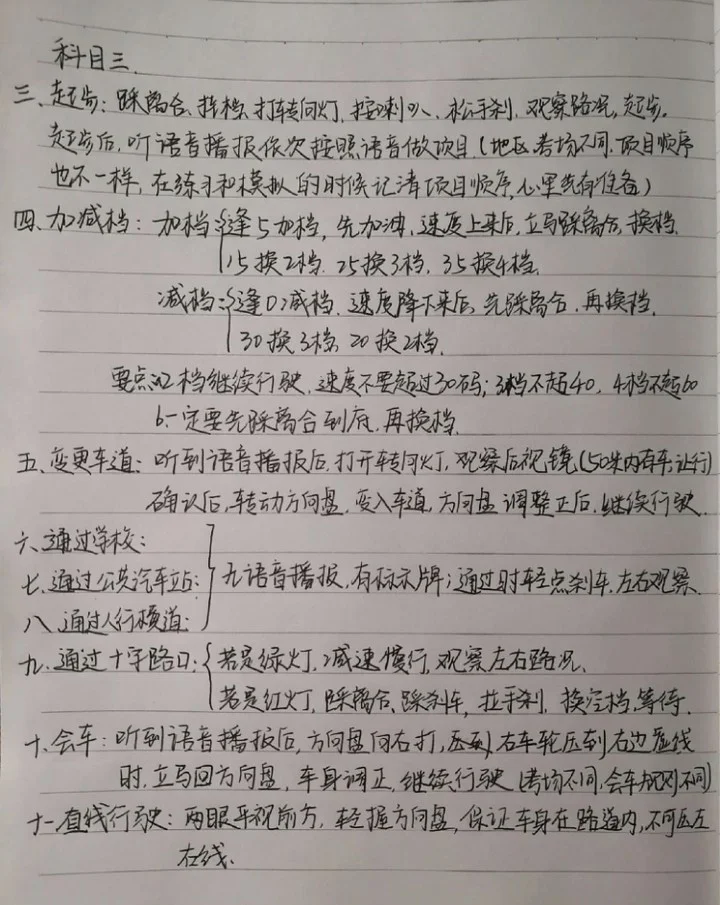 科目三
三、起步：踩离合、挂档、打转向灯、按喇叭、松手刹、观察路况、起步。
起步后，听语音播报依次按照语音做项目（地区、考场不同，项目顺序
也不一样，在练习和模拟的时候记清项目顺序，心里先有准备）
四、加减档：加档：逢5加档，先加油，速度上来后，立马踩离合，换档。
15换2档，25换3档，35换4档。
减档：逢0减档，速度降下来后，先踩离合，再换档。
30换3档，20换2档。
要点：2档继续行驶，速度不要超过30码；3档不超40，4档不超60
6.一定要先踩离合到底，再换档。
五、变更车道：听到语音播报后，打开转向灯，观察后视镜（50米内有车，让行）
确认后，转动方向盘，变入车道，方向盘调整正后，继续行驶。
六、通过学校：
七、通过公共汽车站：
八、通过人行横道：
九语音播报，有标示牌；通过时轻点刹车，左右观察。
九、通过十字路口：若是绿灯，减速慢行，观察左右路况。
若是红灯，踩离合、踩刹车，拉手刹，换空档，等待。
十、会车：听到语音播报后，方向盘向右打，压到右车轮压到右边虚线
时，立马回方向盘，车身调正，继续行驶（考场不同，会车规则不同）
十一、直线行驶：两眼平视前方，轻握方向盘，保证车身在路道内，不可压左
右线。